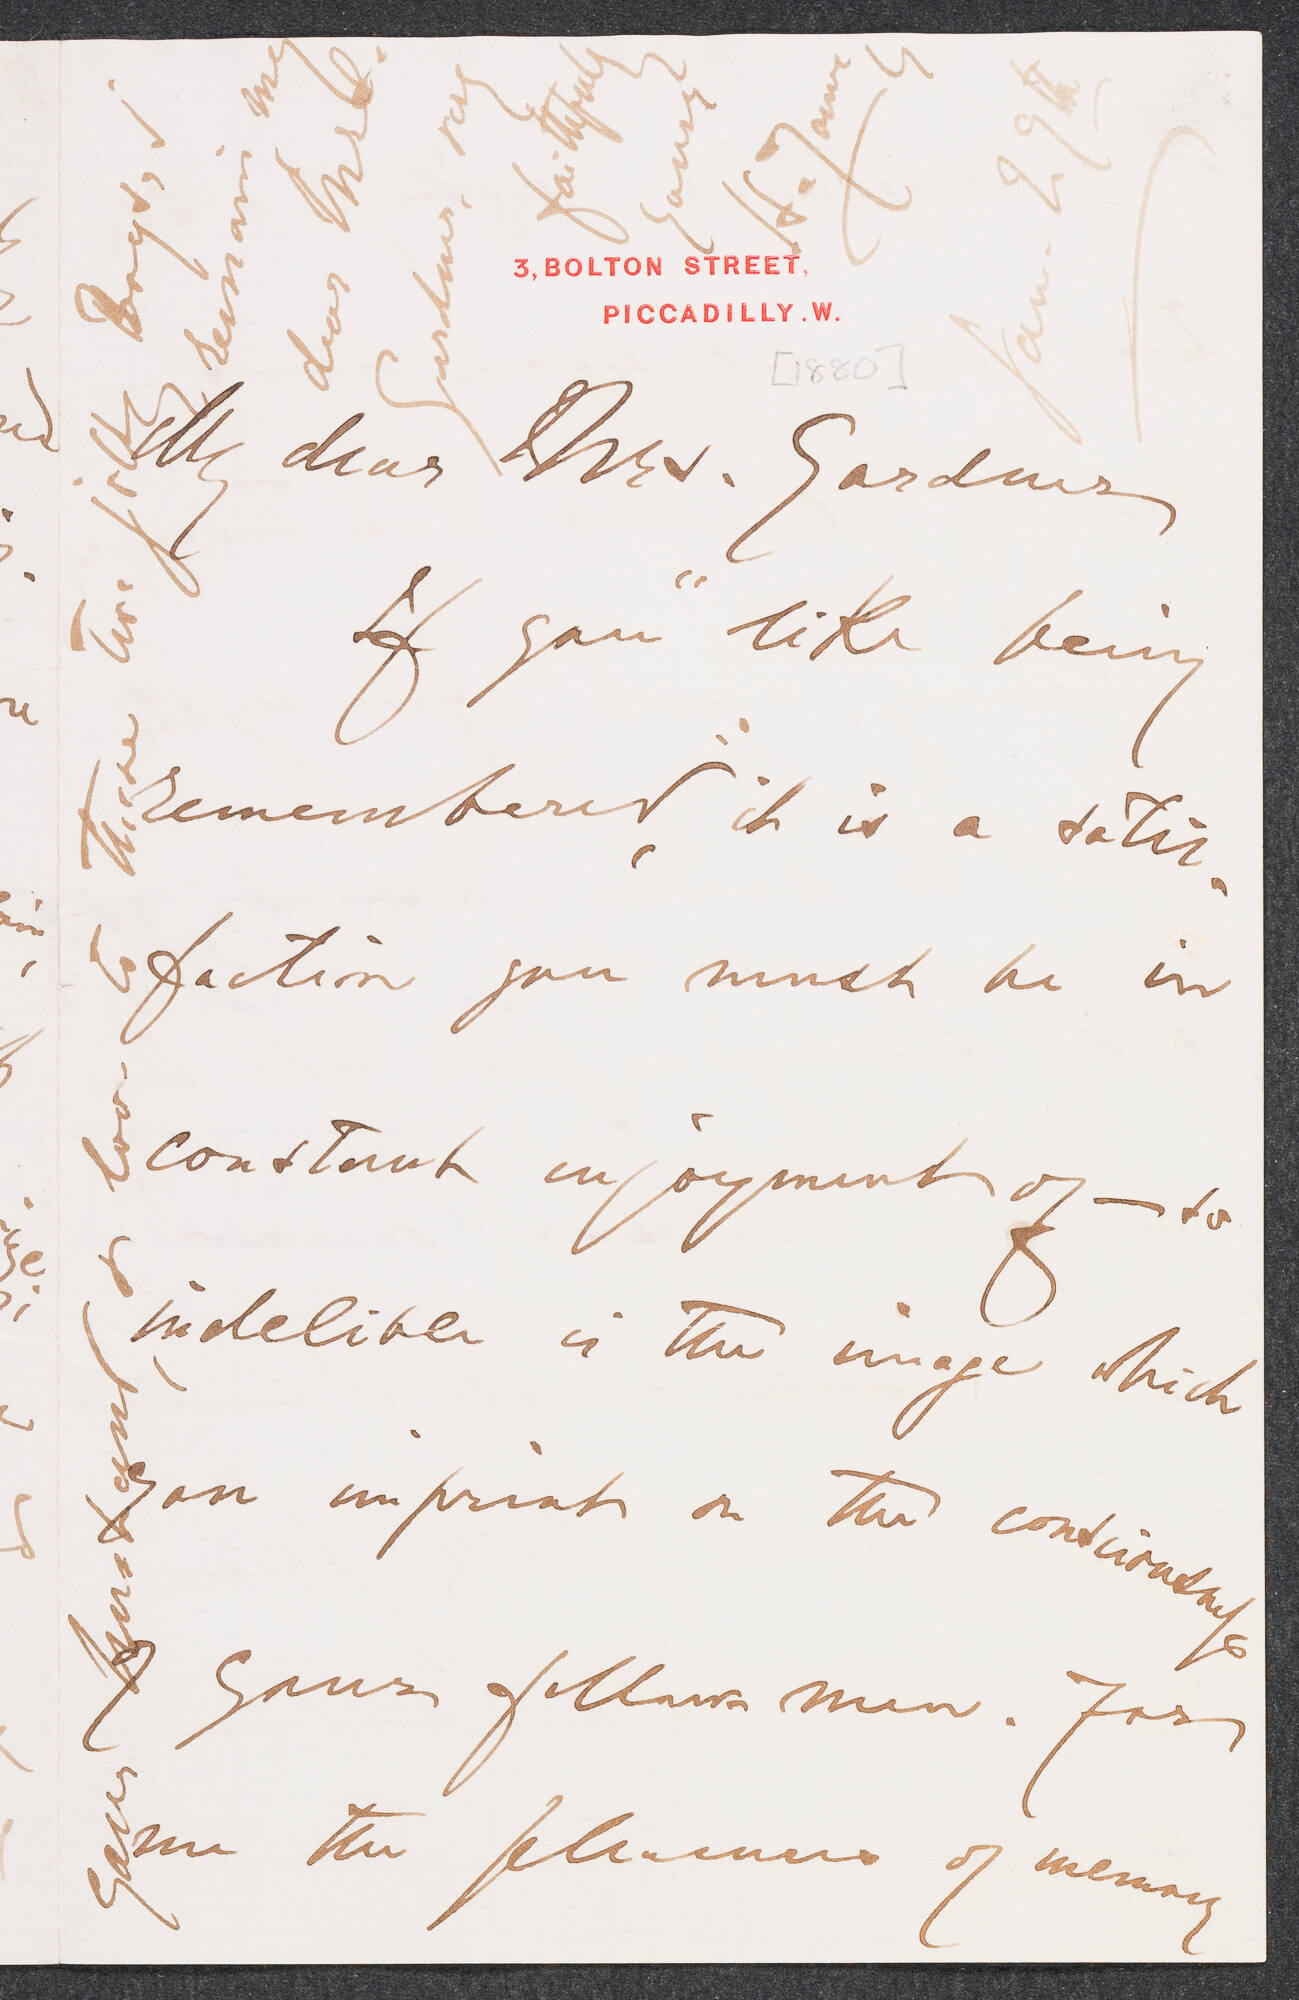 3, BOLTON STREET,
PICCADILLY. W.
[1880]
Jan. 29th
My dear Mrs. Gardner
If you "like being
remembered", it is a satis-
faction you must be in
constant enjoyment of — so
indelible is the image which
you imprint on the consciousness
of your fellow men. For
me the pleasures of memory
your husband, & too to those two jolly boys, I
remain my
dear Mrs.
Gardner, very
faithfully
yours
H. James Jr